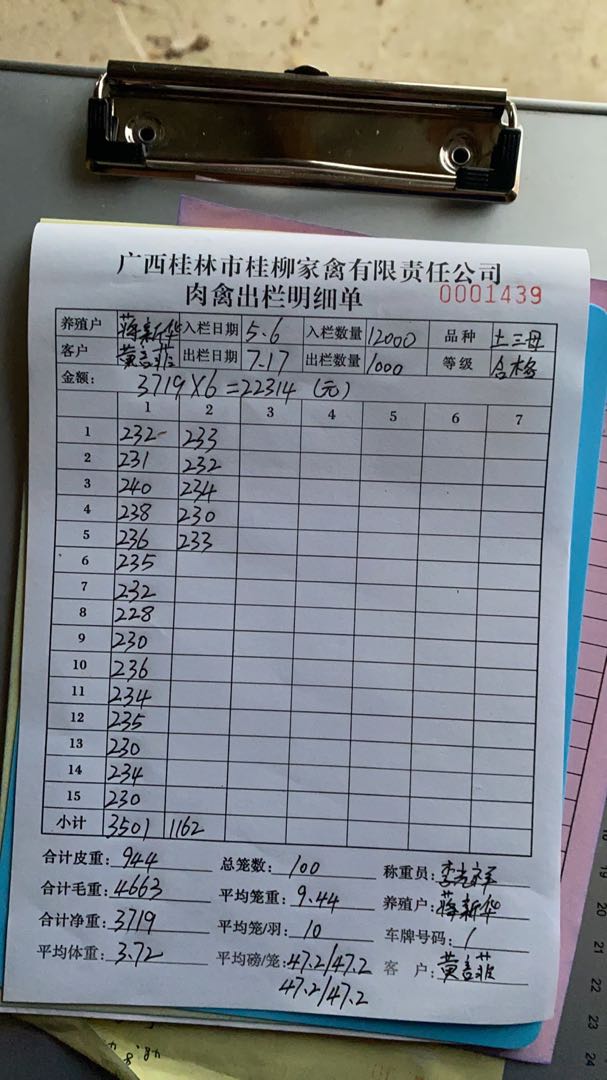 广西桂林市桂柳家禽有限责任公司
肉禽出栏明细单 0001439
养殖户 蒋新华 入栏日期 5.6 入栏数量 12000 品种 土三母
客户 黄 出栏日期 7.17 出栏数量 1000 等级 合格
金额: 3719×6=22314 (元)
1 2 3 4 5 6 7
1 232 233
2 231 232
3 240 234
4 238 230
5 236 233
6 235
7 232
8 228
9 230
10 236
11 234
12 235
13 230
14 234
15 230
小计 3501 1162
合计皮重: 944 总笼数: 100 称重员: 李
合计毛重: 4663 平均笼重: 9.44 养殖户: 蒋新华
合计净重: 3719 平均笼/羽: 10 车牌号码: 1
平均体重: 3.72 平均磅/笼: 47.2/47.2 客 户: 黄
47.2/47.2
19
20
21
22
23
24